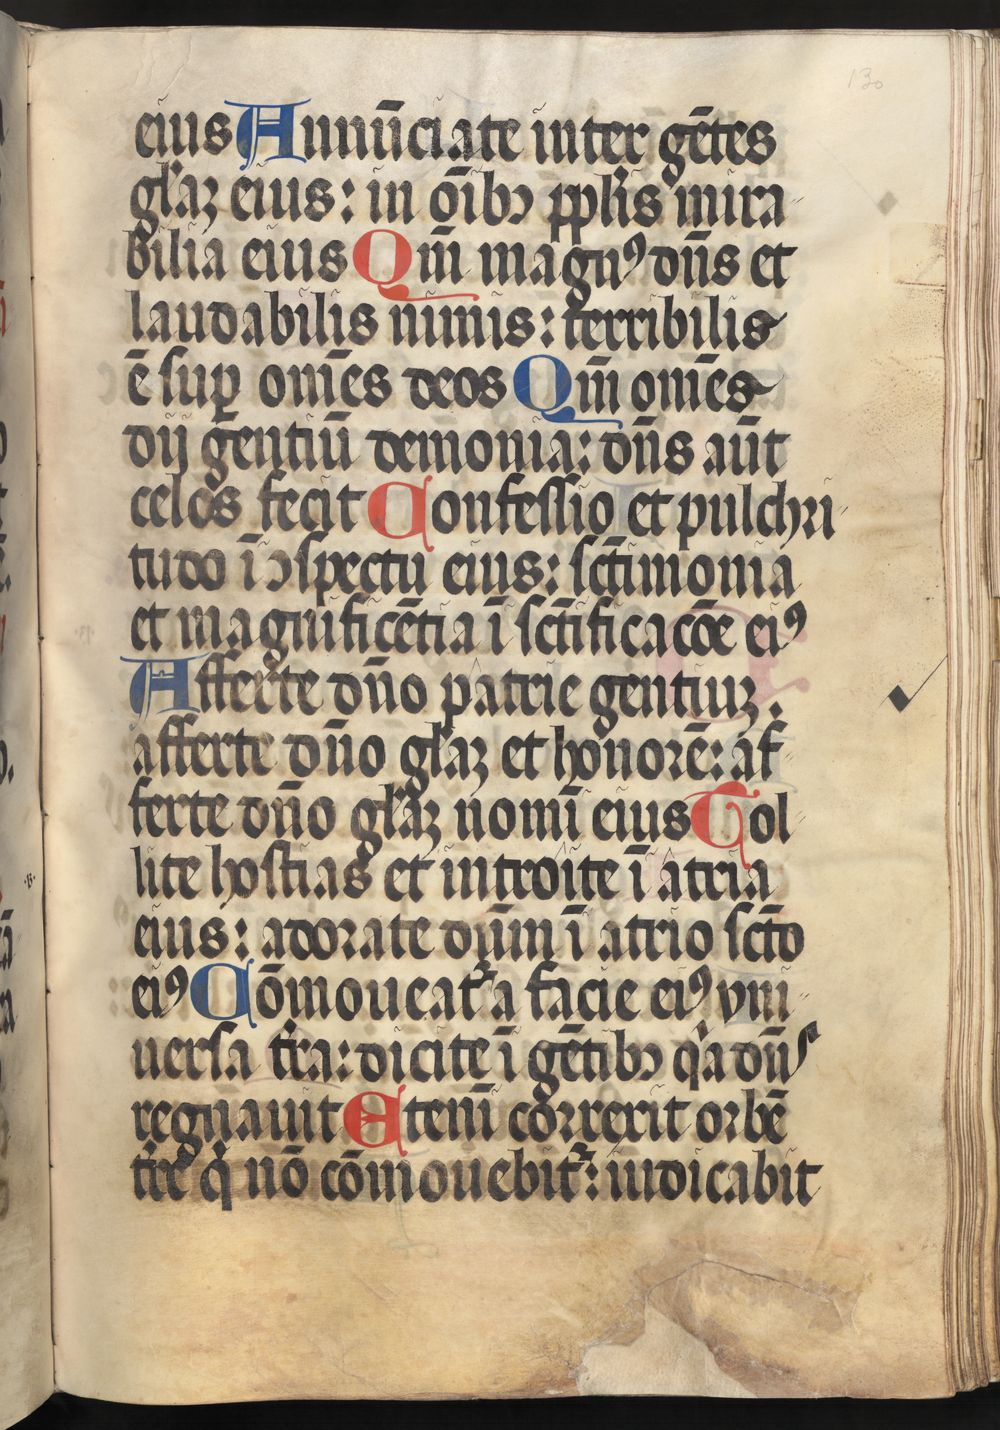 130
eius Annūciate inter gētes
gl̄aꝫ eius: in oībꝫ ppl̄is mira
bilia eius Qm̄ magnꝰ dn̄s et
laudabilis nimis: terribilis
ē sup̱ om̄es deos Qm̄ om̄es
dij gentiū demonia: dn̄s aūt
celos fecit Confessio et pulchri
tudo ī ↄspectu eius: sc̄timonia
et magnificētia ī sc̄tificacōe eiꝰ
Afferte dn̄o patrie gentiuꝫ.
afferte dn̄o gl̄aꝫ et honorē: af
ferte dn̄o gl̄aꝫ nomī eius Tol
lite hostias et introite ī atria
eius: adorate dn̄m ī atrio sc̄to
eiꝰ Cōmoueat᷑ a facie eiꝰ vni
uersa t̄ra: dicite ī gētibꝫ qͥa dn̄s
regnauit Etenī correxit orbē
t̄re qͥ nō cōmouebit᷑: iudicabit